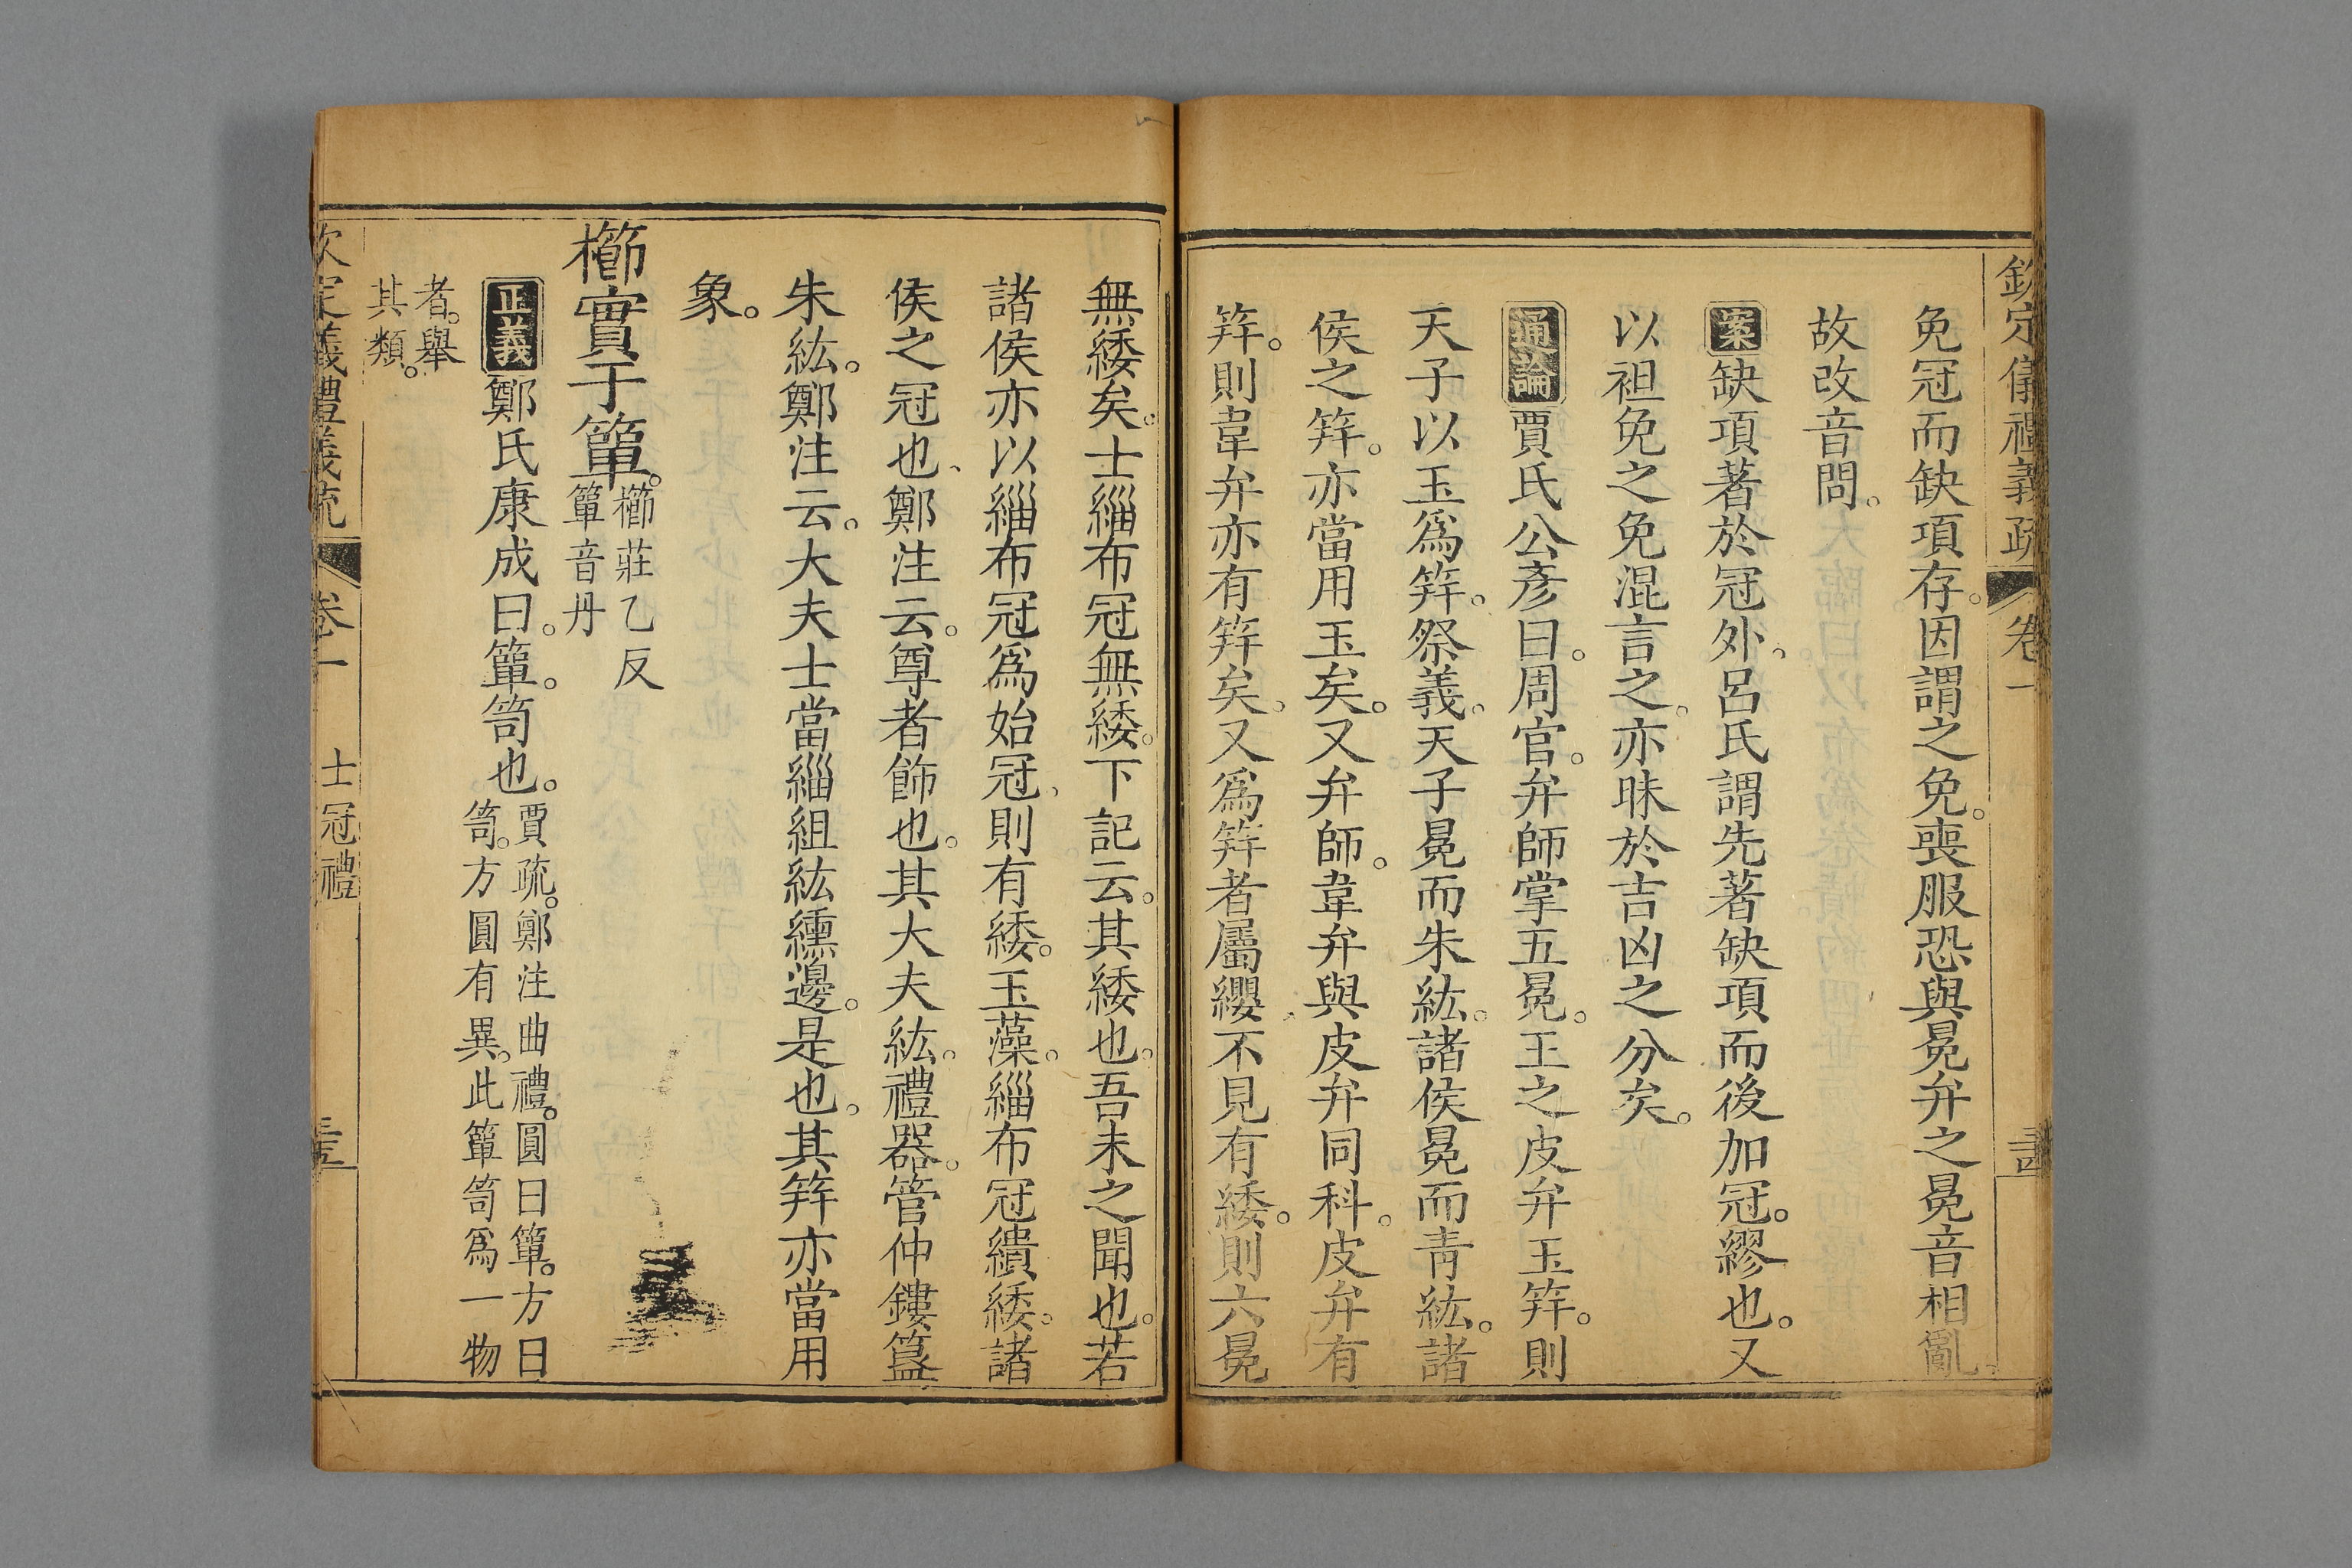 欽定儀禮義疏 卷一 三四
免冠而缺項存。因謂之免。喪服恐與冕弁之冕音相亂。
故改音問。
案缺項著於冠外、呂氏謂先著缺項而後加冠。繆也。又
以袒免之免混言之。亦昧於吉凶之分矣。
通論賈氏公彥曰。周官。弁師掌五冕。王之皮弁玉笄。則
天子以玉爲笄。祭義。天子冕而朱紘。諸侯冕而青紘。諸
侯之笄。亦當用玉矣。又弁師。韋弁與皮弁同科。皮弁有
笄。則韋弁亦有笄矣。又爲笄者屬纓不見有緌。則六冕
無緌矣。士緇布冠無緌。下記云。其緌也。吾未之聞也。若
諸侯亦以緇布冠爲始冠、則有緌。玉藻。緇布冠繢緌。諸
侯之冠也、鄭注云。尊者飾也。其大夫紘。禮器。管仲鏤簋
朱紘。鄭注云。大夫士當緇組紘纁邊。是也。其笄亦當用
象。
櫛實于簞。櫛莊乙反
簞音丹
正義鄭氏康成曰。簞。笥也。賈疏。鄭注曲禮。圓曰簞。方曰
笥。方圓有異。此簞笥爲一物
者。舉
其類。
欽定儀禮義疏 卷一 士冠禮 三五